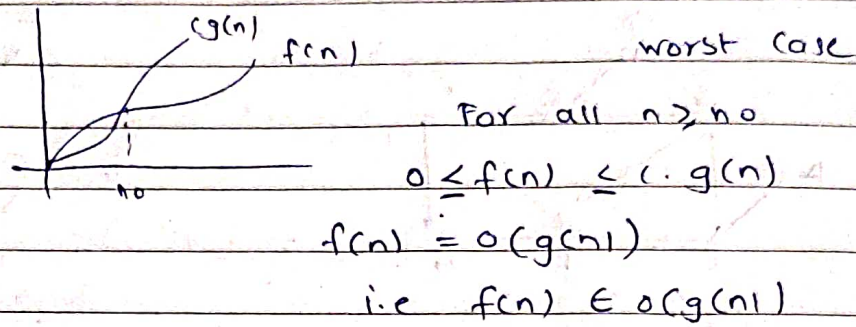 cg(n)
f(n)
worst case
For all n ≥ no
0 ≤ f(n) ≤ c. g(n)
no
f(n) = o(g(n))
i.e f(n) ∈ o(g(n))